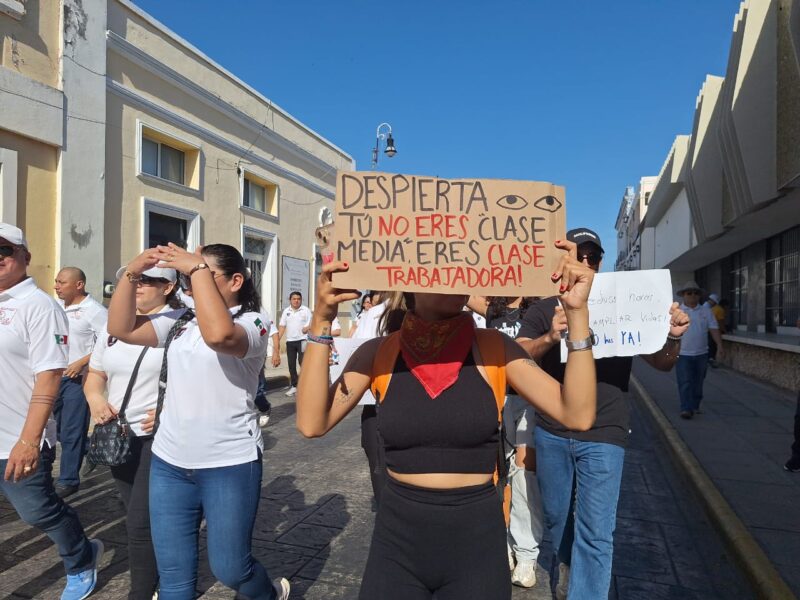 DESPIERTA
TÚ NO ERES "CLASE
MEDIA", ERES CLASE
TRABAJADORA!
horas,
vidas
YA!